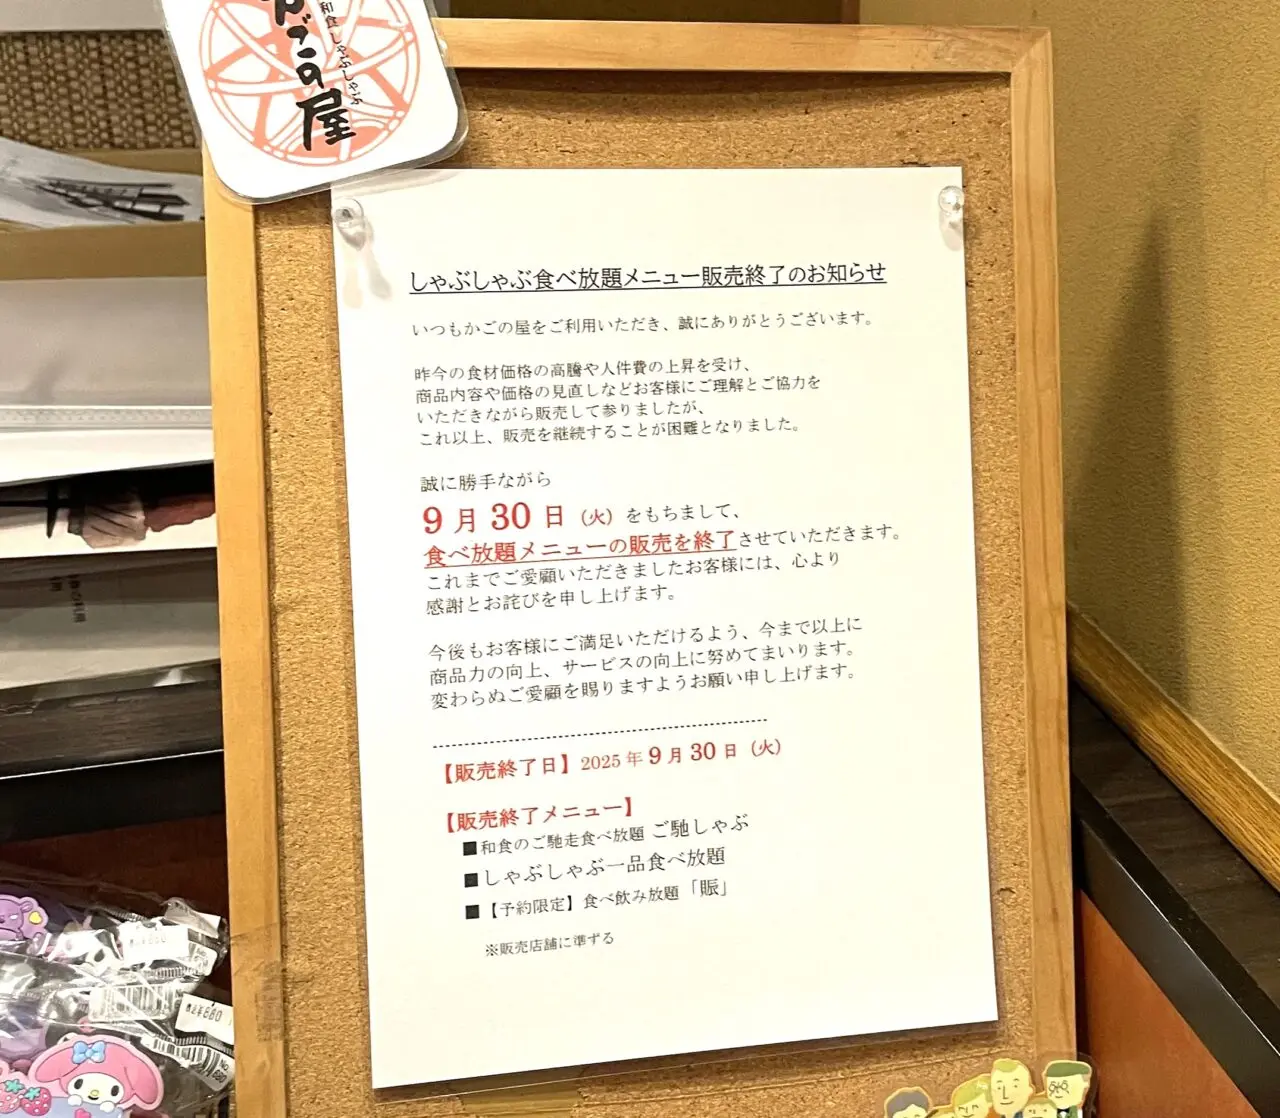 和食しゃぶしゃぶ
かごの屋
しゃぶしゃぶ食べ放題メニュー販売終了のお知らせ
いつもかごの屋をご利用いただき、誠にありがとうございます。
昨今の食材価格の高騰や人件費の上昇を受け、
商品内容や価格の見直しなどお客様にご理解とご協力を
いただきながら販売して参りましたが、
これ以上、販売を継続することが困難となりました。
誠に勝手ながら
9月30日（火）をもちまして、
食べ放題メニューの販売を終了させていただきます。
これまでご愛顧いただきましたお客様には、心より
感謝とお詫びを申し上げます。
今後もお客様にご満足いただけるよう、今まで以上に
商品力の向上、サービスの向上に努めてまいります。
変わらぬご愛顧を賜りますようお願い申し上げます。
【販売終了日】2025年9月30日（火）
【販売終了メニュー】
■和食のご馳走食べ放題 ご馳しゃぶ
■しゃぶしゃぶ一品食べ放題
■【予約限定】食べ飲み放題「賑」
※販売店舗に準ずる
¥660